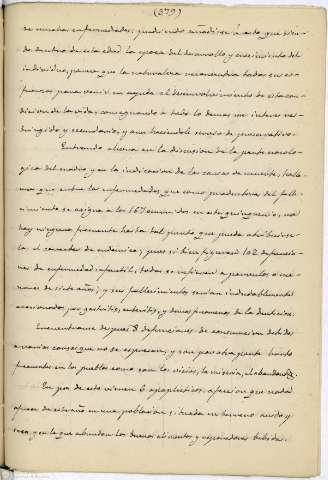 (379)
de muchas enfermedades; pudiendo añadirse à esto que sien-
do dentro de esta edad la época del desarrollo y crecimiento del
individuo, parece que la naturaleza reconcentra todos sus es-
fuerzos para venir en ayuda al desenvolvimiento de esta con-
dicion de la vida, consagrando à todo lo demas un interes res-
tringido y secundario, y aun haciendole servir de preservativo.
Entrando ahora en la discusion de la parte nosolo-
gica del cuadro, y en la indicacion de las causas de muerte, halla-
mos que entre las enfermedades que como productoras del falle-
cimiento se asigna a los 167 ocurridos en este quinquenio, no
hay ninguna frecuente hasta tal punto que pueda atribuirse-
la el caracter de endemica; pues si bien figuran 102 defuncio-
nes de enfermedad infantil, todas se refieren a parvulos ò me-
nores de siete años; y sus fallecimientos serian indudablemente
ocasionados por gastritis, enteritis, y demas fenomenos de la denticion.
Encuentranse despues 8 defunciones de consuncion debidas
a varias causas que no se expresan, y son por otra parte harto
frecuentes en los pueblos como son los vicios, la miseria, el abandono &.
En pos de esto vienen 6 apoplecticos, afeccion que nada
ofrece de extraño en una poblacion situada en terreno arido y
seco, y en la que abundan los buenos alimentos y espirituosas bebidas.